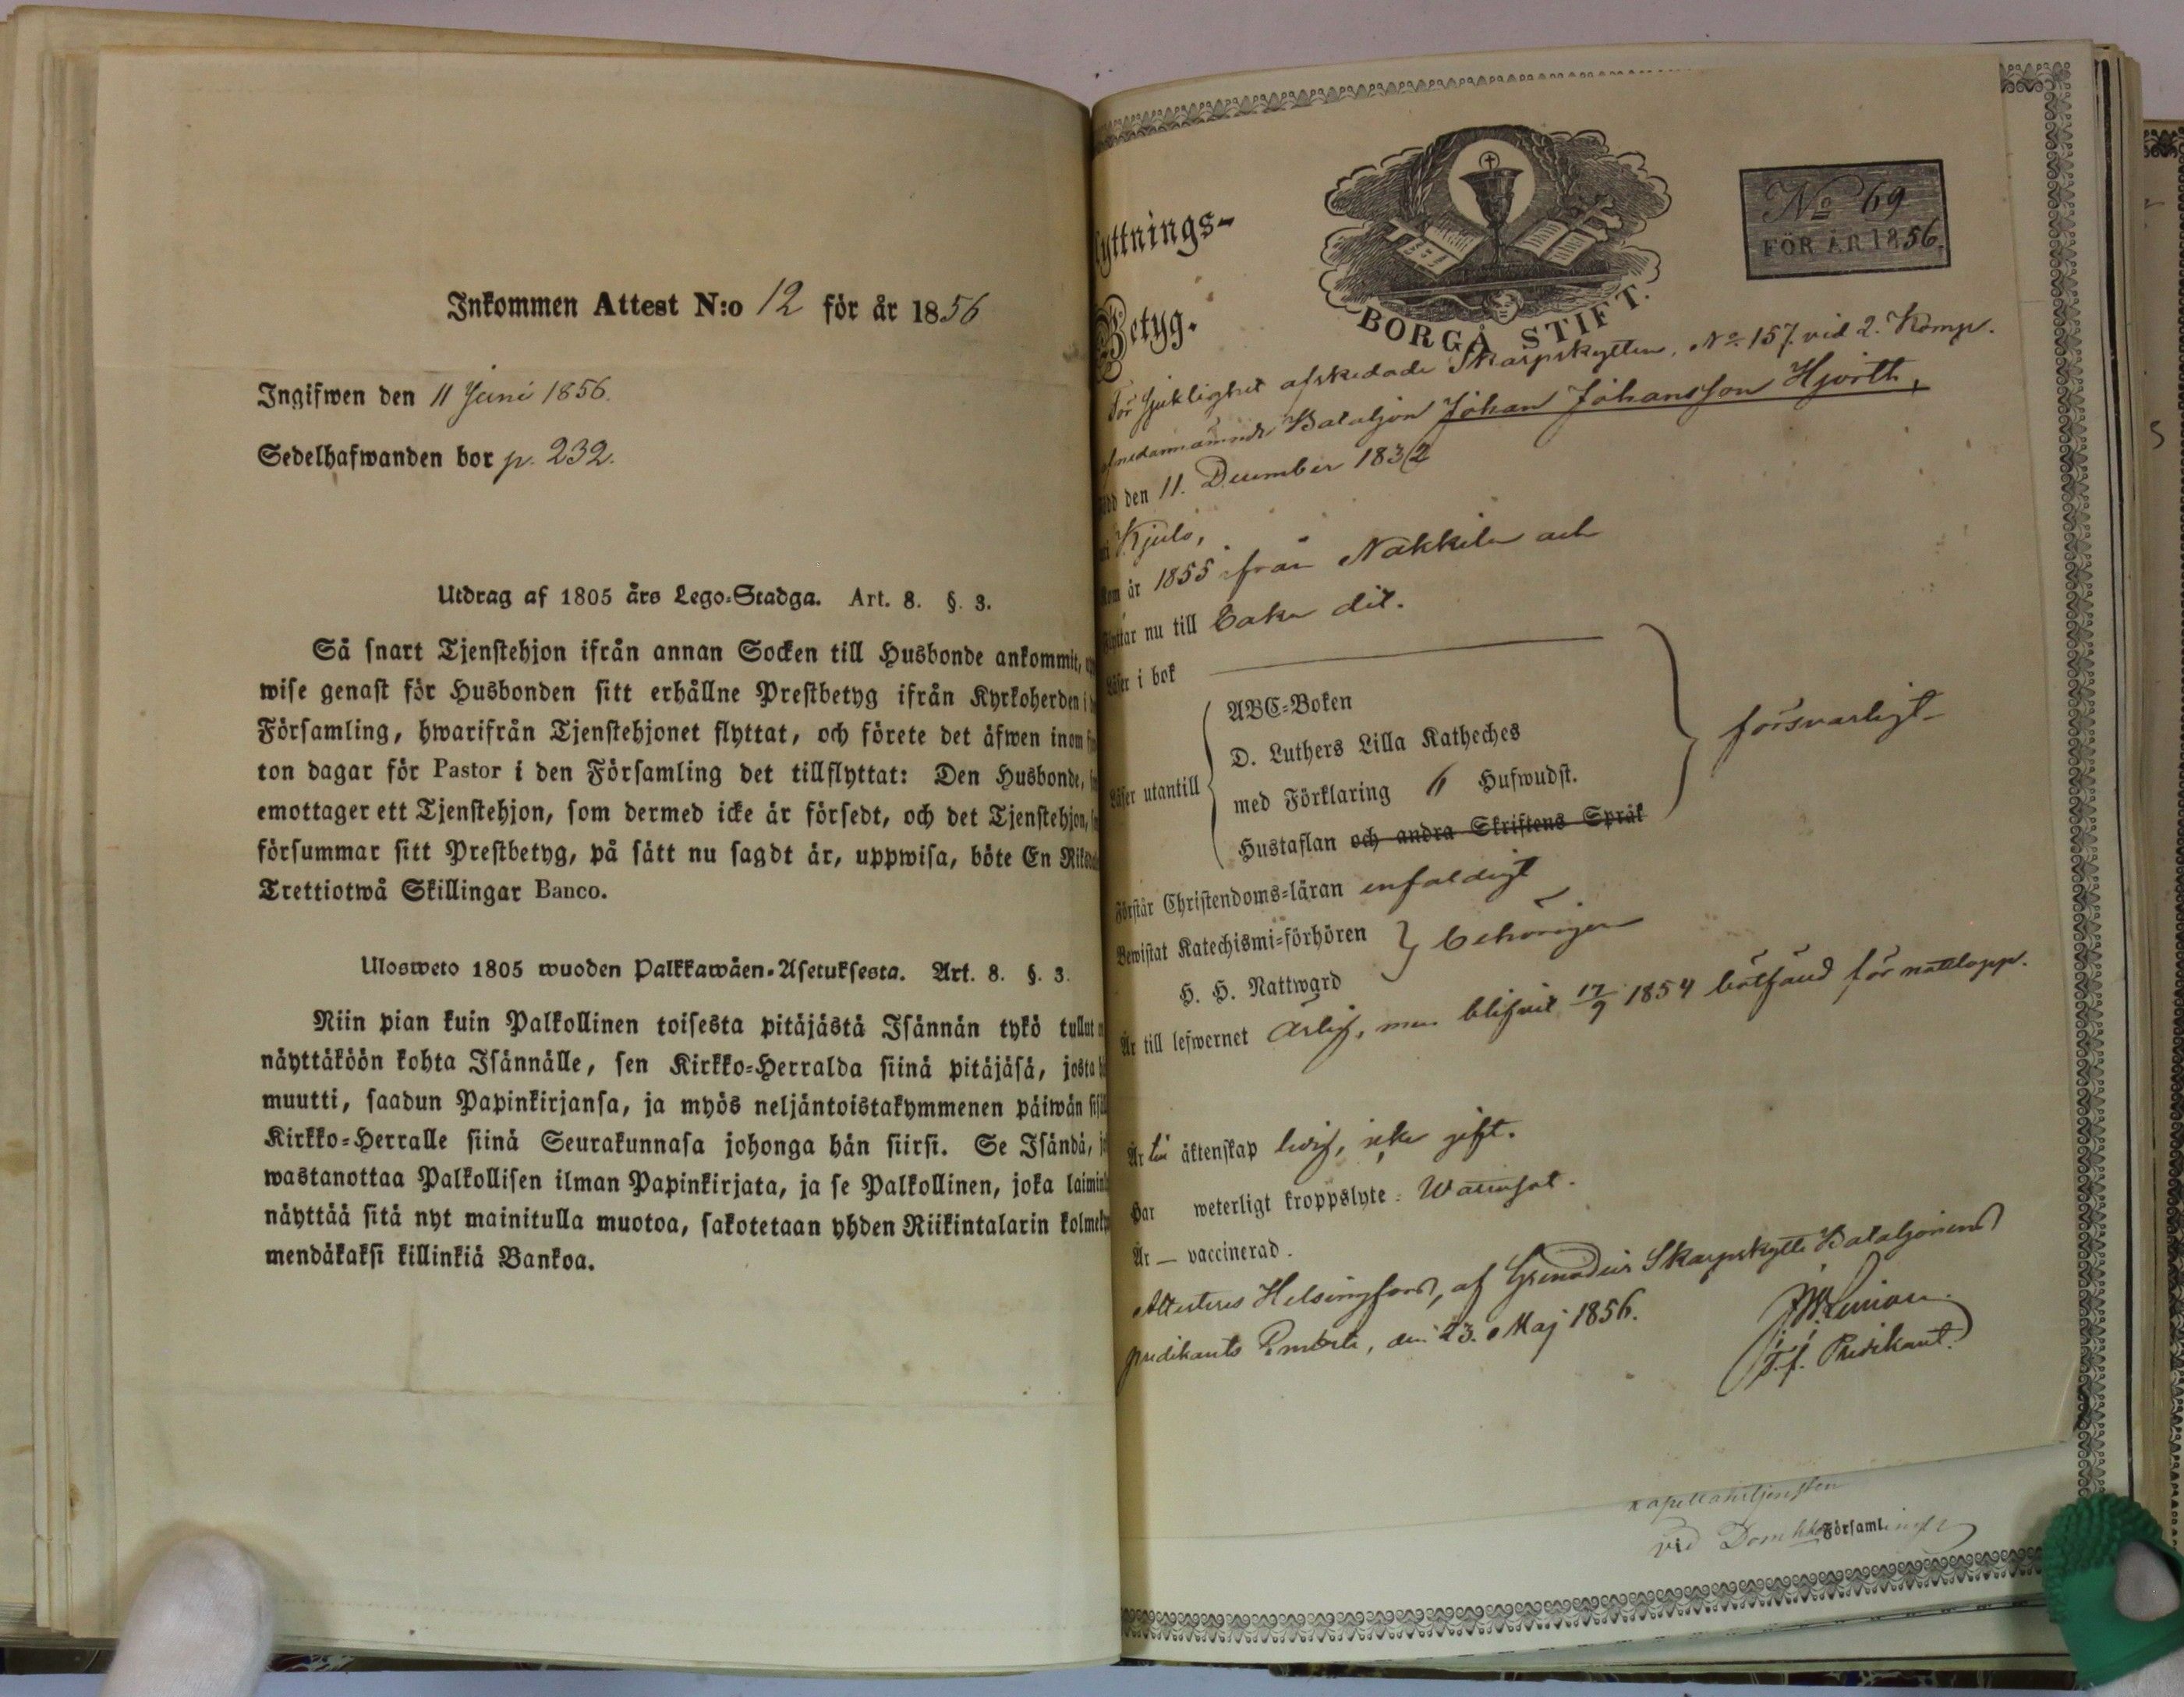 Inkommen Attest N:o 12 för år 1856
Ingifwen den 11 Juni 1856.
Sedelhafwanden bor p. 232.
Utdrag af 1805 års Lego-Stadga. Art. 8. §. 3.
Så snart Tjenstehjon ifrån annan Socken till Husbonde ankommit,
wise genast för Husbonden sitt erhållne Prestbetyg ifrån Kyrkoherden i
Församling, hwarifrån Tjenstehjonet flyttat, och förete det äfwen inom
ton dagar för Pastor i den Församling det tillflyttat: Den Husbonde,
emottager ett Tjenstehjon, som dermed icke är försedt, och det Tjenstehjon,
försummar sitt Prestbetyg, på sätt nu sagdt är, uppwisa, böte En
Trettiotwå Skillingar Banco.
Ulosweto 1805 wuoden Palkkawäen-Asetuksesta. Art. 8. §. 3.
Niin pian kuin Palkollinen toisesta pitäjästä Isännän tykö tullut
näyttäköön kohta Isännälle, sen Kirkko-Herralda siinä pitäjäsä, josta
muutti, saadun Papinkirjansa, ja myös neljäntoistakymmenen päiwän
Kirkko-Herralle siinä Seurakunnasa johonga hän siirsi. Se Isändä,
wastanottaa Palkollisen ilman Papinkirjata, ja se Palkollinen, joka
näyttää sitä nyt mainitulla muotoa, sakotetaan yhden Riikintalarin
mendäkaksi killinkiä Bankoa.
yttnings-
Betyg.
BORGÅ STIFT.
No 69
FÖR ÅR 1856.
För sjuklighet afskedade Skarpskytten, No 157 vid 2. Komp.
ofnedannämnde Bataljon Johan Johansson Hjorth,
född den 11. December 1832
i Kjulo,
Kom år 1855 från Nakkila och
Flyttar nu till baka dit.
Läser i bok
Läser utantill
ABC-Boken
D. Luthers Lilla Katheches
med Förklaring 6 Hufwudst.
Hustaflan och andra Skriftens Språk
försvarligt
Förstår Christendoms-läran enfaldigt
Bewistat Katechismi-förhören
H. H. Nattward
behörigen
Är till lefwernet ärlig, men blifvit 17/9 1854 bötfäld för nattlopp.
Är till äktenskap ledig, icke gift.
Har weterligt kroppslyte: Wattusot.
Är — vaccinerad.
Attesteres Helsingfors, af Grenadier Skarpskytte Bataljonens
predikants Embete, den 23. Maj 1856.
T. f. Predikant.
kapellanstjensten
vid Domkko Församlingen